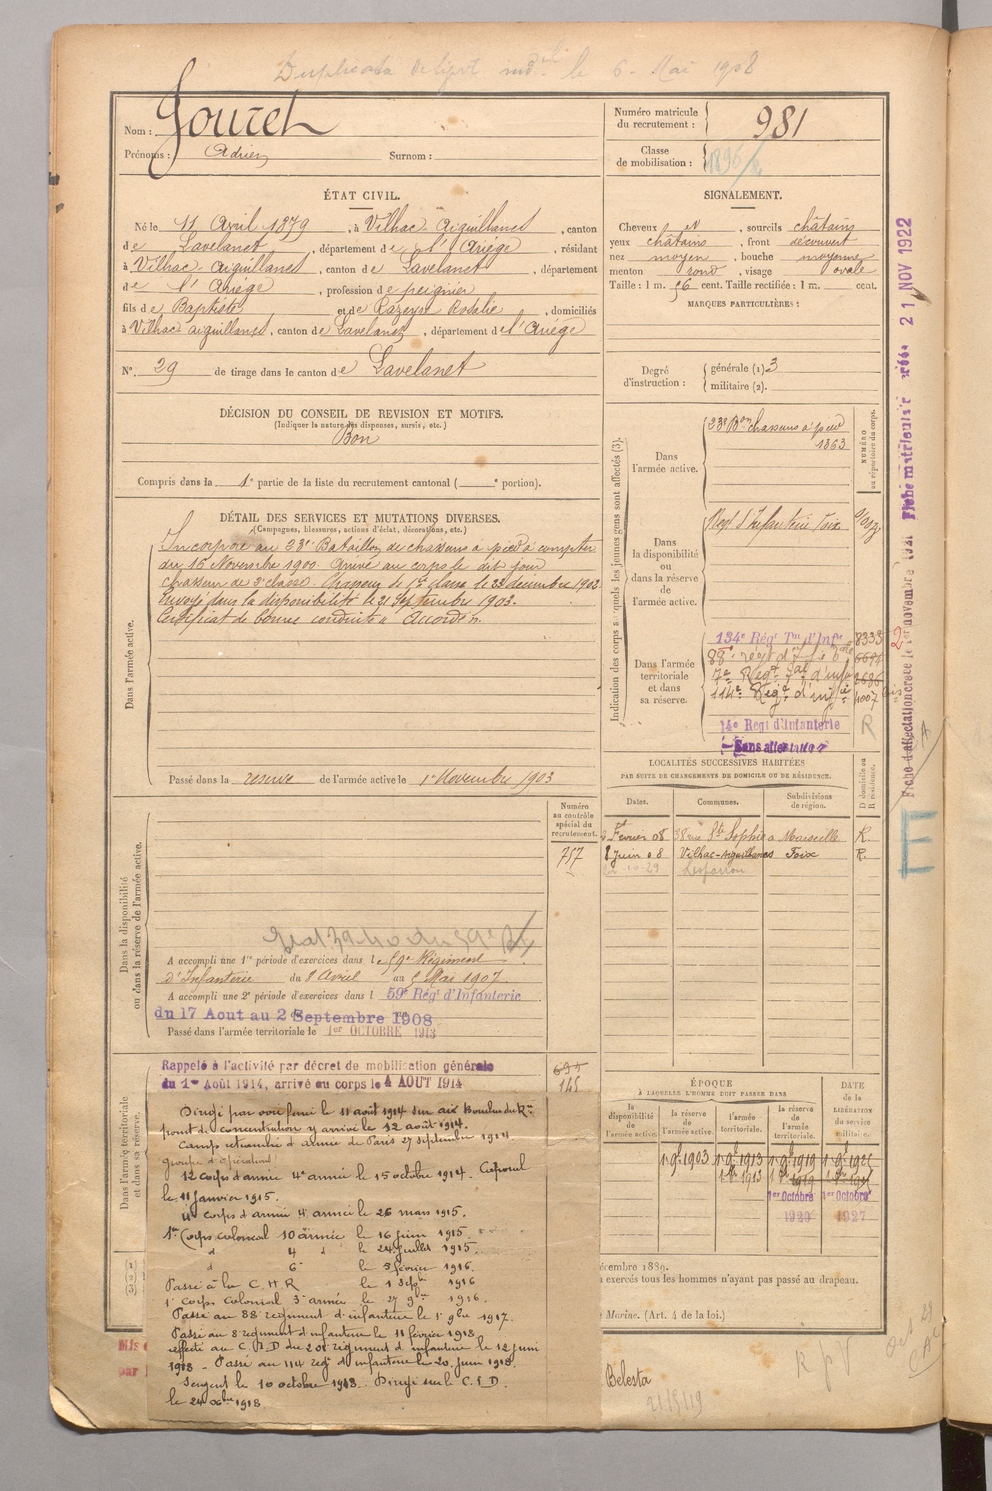 Duplicata le 6 Mai 1908
Nom : Jouret
Prénoms : Adrien Surnom :
Numéro matricule du recrutement : 981
Classe de mobilisation : 1896
ÉTAT CIVIL.
Né le 11 Avril 1879, à Vilhac Aiguillanes, canton
de Lavelanet, département de l'Ariège, résidant
à Vilhac Aiguillanes, canton de Lavelanet, département
de l'Ariège, profession de peignier
fils de Baptiste et de Razeyre Rosalie, domiciliés
à Vilhac aiguillanes, canton de Lavelanet, département de l'Ariège
N° 29 de tirage dans le canton de Lavelanet
SIGNALEMENT.
Cheveux et, sourcils châtains
yeux châtains, front découvert
nez moyen, bouche moyenne
menton rond, visage ovale
Taille : 1 m. 56 cent. Taille rectifiée : 1 m. cent.
MARQUES PARTICULIÈRES :
Degré d'instruction : générale (1) 3
militaire (2).
DÉCISION DU CONSEIL DE REVISION ET MOTIFS.
(Indiquer la nature des dispenses, sursis, etc.)
Bon
Compris dans la 1e partie de la liste du recrutement cantonal ( e portion).
DÉTAIL DES SERVICES ET MUTATIONS DIVERSES.
(Campagnes, blessures, actions d'éclat, décorations, etc.)
Dans l'armée active.
Incorporé au 23e Bataillon de chasseurs à pied à compter
du 16 Novembre 1900. Arrivé au corps le dit jour
chasseur de 2e classe. Chasseur de 1re classe le 23 décembre 1902.
Envoyé dans la disponibilité le 21 Septembre 1903.
Certificat de bonne conduite "Accordé".
Passé dans la réserve de l'armée active le 1er Novembre 1903
Indication des corps auxquels les jeunes gens sont affectés (3).
NUMÉRO au répertoire du corps.
Dans l'armée active.
23e Bon chasseurs à pied
1363
Dans la disponibilité ou dans la réserve de l'armée active.
Regt d'Infanterie Foix
Dans l'armée territoriale et dans sa réserve.
134e Régt Tal d'Infie 8333
114e Régt d'infie 4007
14e Regt d'Infanterie R
Sans affectation
LOCALITÉS SUCCESSIVES HABITÉES
PAR SUITE DE CHANGEMENTS DE DOMICILE OU DE RÉSIDENCE.
Dates. Communes. Subdivisions de région. D domicile ou R résidence.
Février 08 38 rue Ste Sophie à Marseille R.
8 Juin 08 Vilhac-Aiguillanes Foix R.
Numéro au contrôle spécial du recrutement.
757
Dans la disponibilité ou dans la réserve de l'armée active.
A accompli une 1re période d'exercices dans le 59e Régiment
d'Infanterie du 8 Avril au 5 Mai 1907
A accompli une 2e période d'exercices dans l 59e Régt d'Infanterie
du 17 Aout au 2 Septembre 1908
Passé dans l'armée territoriale le 1er OCTOBRE 1913
Dans l'armée territoriale et dans sa réserve.
Rappelé à l'activité par décret de mobilisation générale
du 1er Août 1914, arrivé au corps le 4 AOUT 1914
694
145
Dirigé par voie ferrée le 11 août 1914 sur
point de concentration y arrivé le 12 août 1914.
Camp retranché d'armée de Paris 27 septembre 1914
groupe d'opération
12 corps d'armée 4e armée le 15 octobre 1914. Caporal
le 11 janvier 1915.
4e Corps d'armée 4e armée le 26 mars 1915.
1er Corps colonial 10 armée le 16 juin 1915.
d 4 d le 24 juillet 1915.
d 6 le 5 février 1916.
Passé à la C.H.R le 1 sept 1916
1er Corps colonial 3e armée le 27 9bre 1916.
Passé au 88 régiment d'infanterie le 1er 9bre 1917.
Passé au 8 régiment d'infanterie le 11 février 1918
affecté au C.I.D du 201 régiment d'infanterie le 12 juin
1918 - Passé au 114 regt d'infanterie le 20 juin 1918.
Sergent le 10 octobre 1918. Dirigé sur le C.I.D.
le 24 1918.
ÉPOQUE À LAQUELLE L'HOMME DOIT PASSER DANS
la disponibilité de l'armée active. la réserve de l'armée active. l'armée territoriale. la réserve de l'armée territoriale.
DATE de la LIBÉRATION du service militaire.
1er 9bre 1903 1er 9bre 1913 1er 9bre 1919
1er Octobre 1920 1er Octobre 1927
(1)
(2)
(3)
décembre 1889.
exercés tous les hommes n'ayant pas passé au drapeau.
Marine. (Art. 4 de la loi.)
Belesta
R p V
Fiche matriculaire créée 21 NOV 1922